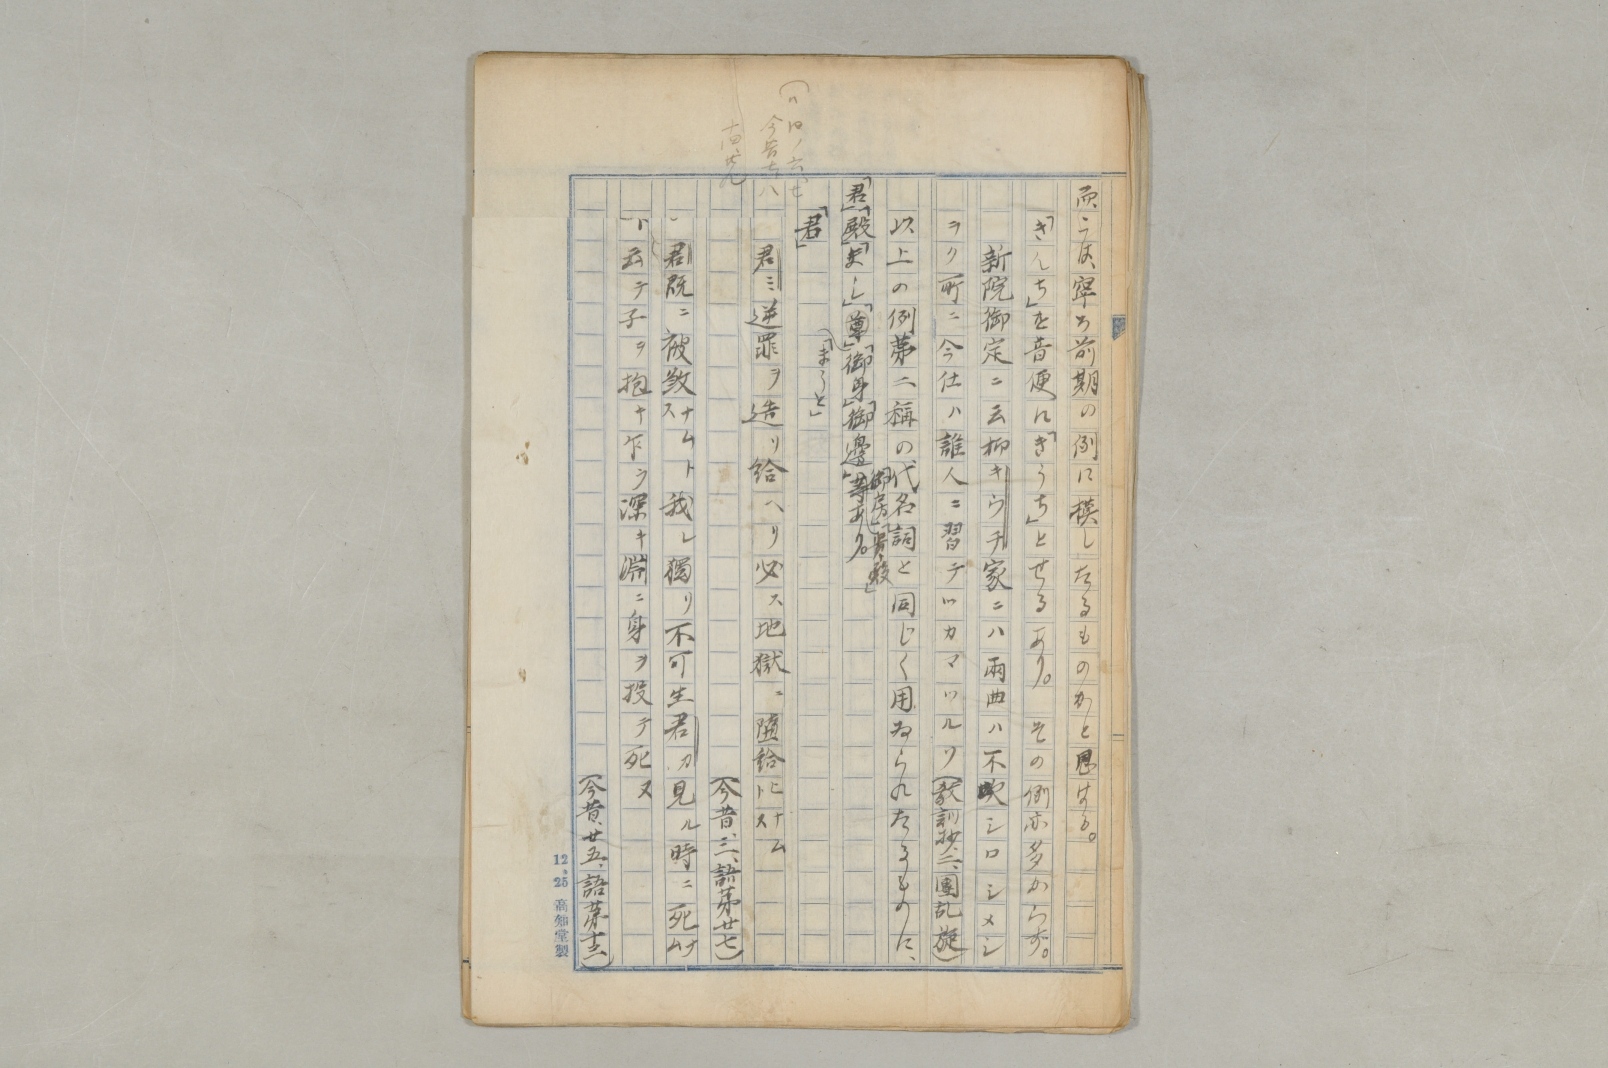 而うは寧ろ前期の例に模したるものかと思はる。
「きんち」を音便に「きうち」とせるあり。その例亦多からず。
新院御定ニ云柳キウチ家ニハ兩曲ハ不吹シロシメシ
ヲク所ニ今仕ハ誰人ニ習テツカマツルリ(教訓抄二、團乱旋)
以上の例第二稱の代名詞と同じく用ゐられたるものに、
「君」「殿」「まし」「尊」「御身」「御邊」「御房」「男殿」等あり。
「まうと」
「君」
君ミ逆罪ヲ造リ給ヘリ必ス地獄ニ墮給ヒナムトス
(今昔、二、語第廿七)
君既ニ被敓ナムトス我レ獨リ不可生君カ見ル時ニ死ナム
ト云テ子ヲ抱キ乍ラ深キ淵ニ身ヲ投テ死ヌ
(今昔、廿五、語第十二)
12.25 高知堂製